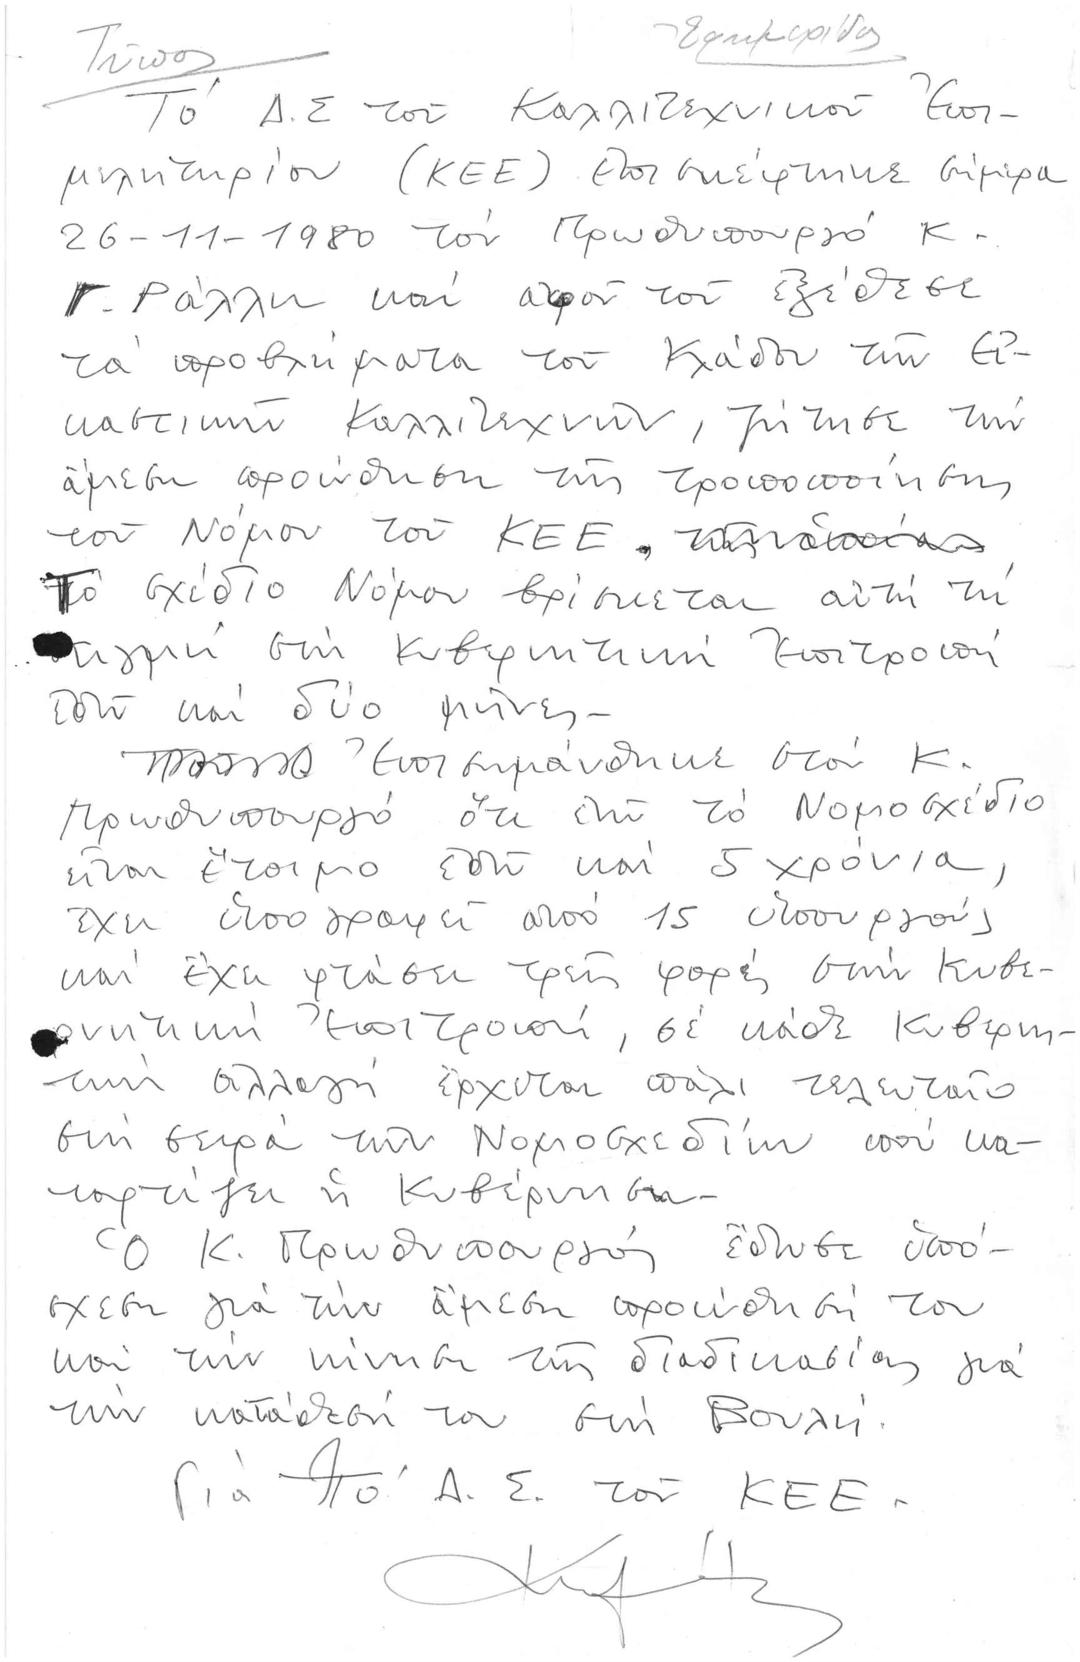 Τύπος
Ἐφημερίδες
Τό Δ.Σ τοῦ Καλλιτεχνικοῦ Ἐπι-
μελητηρίου (ΚΕΕ) ἐπισκέφτηκε σήμερα
26-11-1980 τόν Πρωθυπουργό κ.
Γ. Ράλλη καί ἀφοῦ τοῦ ἐξέθεσε
τά προβλήματα τοῦ Κλάδου τῶν Εἰ-
καστικῶν Καλλιτεχνῶν, ζήτησε τήν
ἄμεση προώθηση τῆς τροποποίησης
τοῦ Νόμου τοῦ ΚΕΕ. τῆς ὁποίας
Τό σχέδιο Νόμου βρίσκεται αὐτή τή
στιγμή στήν Κυβερνητική Ἐπιτροπή
ἐδῶ καί δύο μῆνες-
Ἐπισημάνθηκε στόν κ.
Πρωθυπουργό ὅτι ἐνῶ τό Νομοσχέδιο
εἶναι ἕτοιμο ἐδῶ καί 5 χρόνια,
ἔχει ὑπογραφεῖ ἀπό 15 ὑπουργούς
καί ἔχει φτάσει τρεῖς φορές στήν Κυβε-
ρνητική Ἐπιτροπή, σέ κάθε Κυβερνη-
τική ἀλλαγή ἔρχεται πάλι τελευταῖο
στή σειρά τῶν Νομοσχεδίων πού κα-
ταρτίζει ἡ Κυβέρνηση-
Ὁ κ. Πρωθυπουργός ἔδωσε ὑπό-
σχεση γιά τήν ἄμεση προώθησή του
καί τήν κίνηση τῆς διαδικασίας γιά
τήν κατάθεσή του στή Βουλή.
Γιά τό Δ.Σ. τοῦ ΚΕΕ.